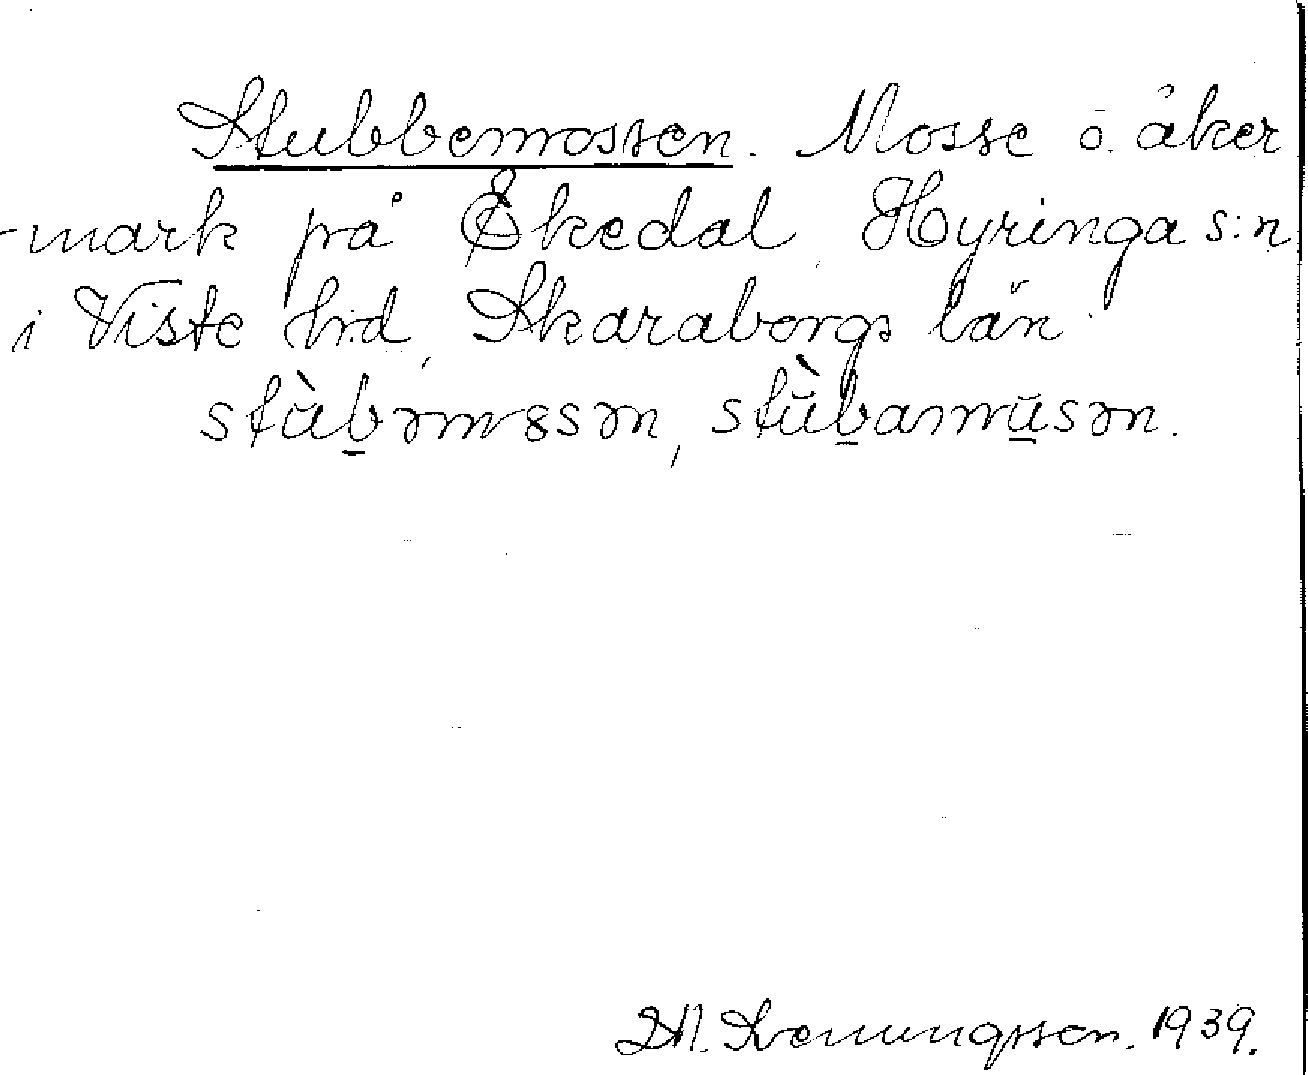 Stubbemossen. Mosse o. åker
-mark på Ekedal, Hyringa s:n
i Viste h:d, Skaraborgs län.
stùb̲əmɞsən, stùb̲amu̲sən.
1939.